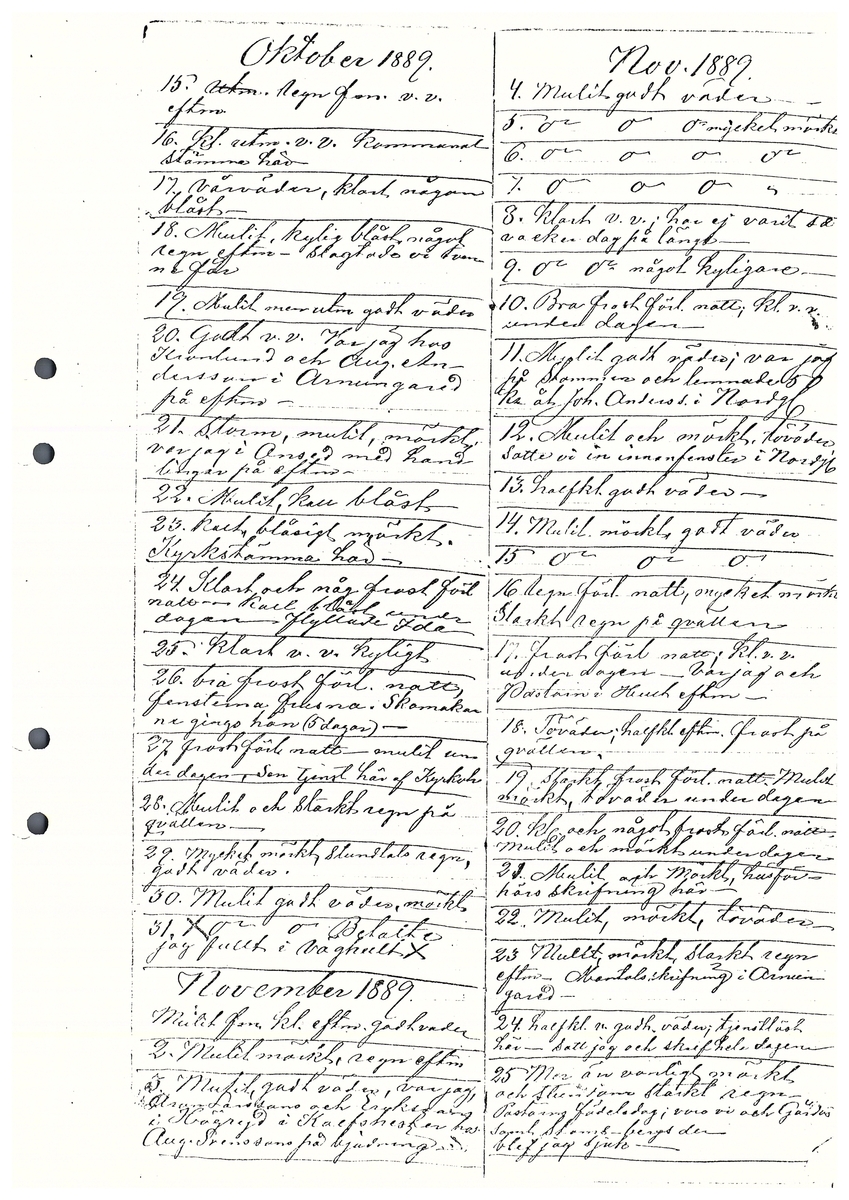 Oktober 1889.
15. regn fm. v. v.
eftm.
16. kl. utm. v. v. Kommunal
stämma här
17. vårväder, klart någon
blåst
18. Mulit, kylig blåst, något
regn eftm — Slagtade vi tven
ne får
19. Mulit men utm godt väder
20. Godt v. v. Var jag hos
Kronlund och Aug. An-
dersson i Arnungared
på eftm —
21. Storm, mulit, mörkt,
var jag i med hand
lingar på eftm —
22. Mulit, kall blåst —
23. kallt, blåsigt mörkt.
Kyrkstämma här —
24. Klart och någ frost förl
natt — Kall blåst under
dagen — flyttade Ida
25. Klart v. v. kyligt
26. bra frost förl. natt,
fensterna frusna. Skomakar
ne gingo hän (5 dagar) —
27. frost förl natt — mulit un
der dagen, Sen tjenst här af Kyrkoh
28. Mulit och starkt regn på
qvällen —
29. Mycket mörkt, stundtals regn,
godt väder.
30. Mulit godt väder, mörkt
31. X Betalte
jag fullt i Våghult X
November 1889.
Mulit fm. kl. eftm. godt väder
2. Mulit mörkt, regn eftm
3. Mulit, godt väder, var jag,
och
i Högryd i hos
Aug. Svenssons på bjudning —
Nov. 1889.
4. Mulit godt väder —
5. mycket mörkt
6.
7.
8. Klart v. v.; har ej varit så
vacker dag på länge —
9. något kyligare —
10. Bra frost förl. natt; kl. v. v.
under dagen —
11. Mulit godt väder; var jag
på Stommen och lemnade 50
åt Joh. Anderss. i
12. Mulit och mörkt, töväder
satte vi in innanfenster i
13. halfkl. godt väder —
14. Mulit mörkt, godt väder
15
16 regn förl. natt, mycket mörkt
Starkt regn på qvällen
17. frost förl natt; kl. v. v.
under dagen — Var jag och
i eftm —
18. Töväder; halfkl eftm. frost på
qvällen.
19. Starkt frost förl. natt. Mulit
mörkt, töväder under dagen
20. kl. och något frost förl. natt
Mulit och mörkt under dagen
21. Mulit och Mörkt, husför-
hörs skrifning här —
22. Mulit, mörkt, töväder —
23 Mulit, mörkt, starkt regn
eftm — Mantalsskrifning i Arnun
gared —
24. halfkl. o. godt. väder; tjenstlöst
här — satt jag och skref hela dagen
25 Mer än vanligt mörkt
och starkt regn —
födelsedag; voro vi och
samt
blef jag sjuk —